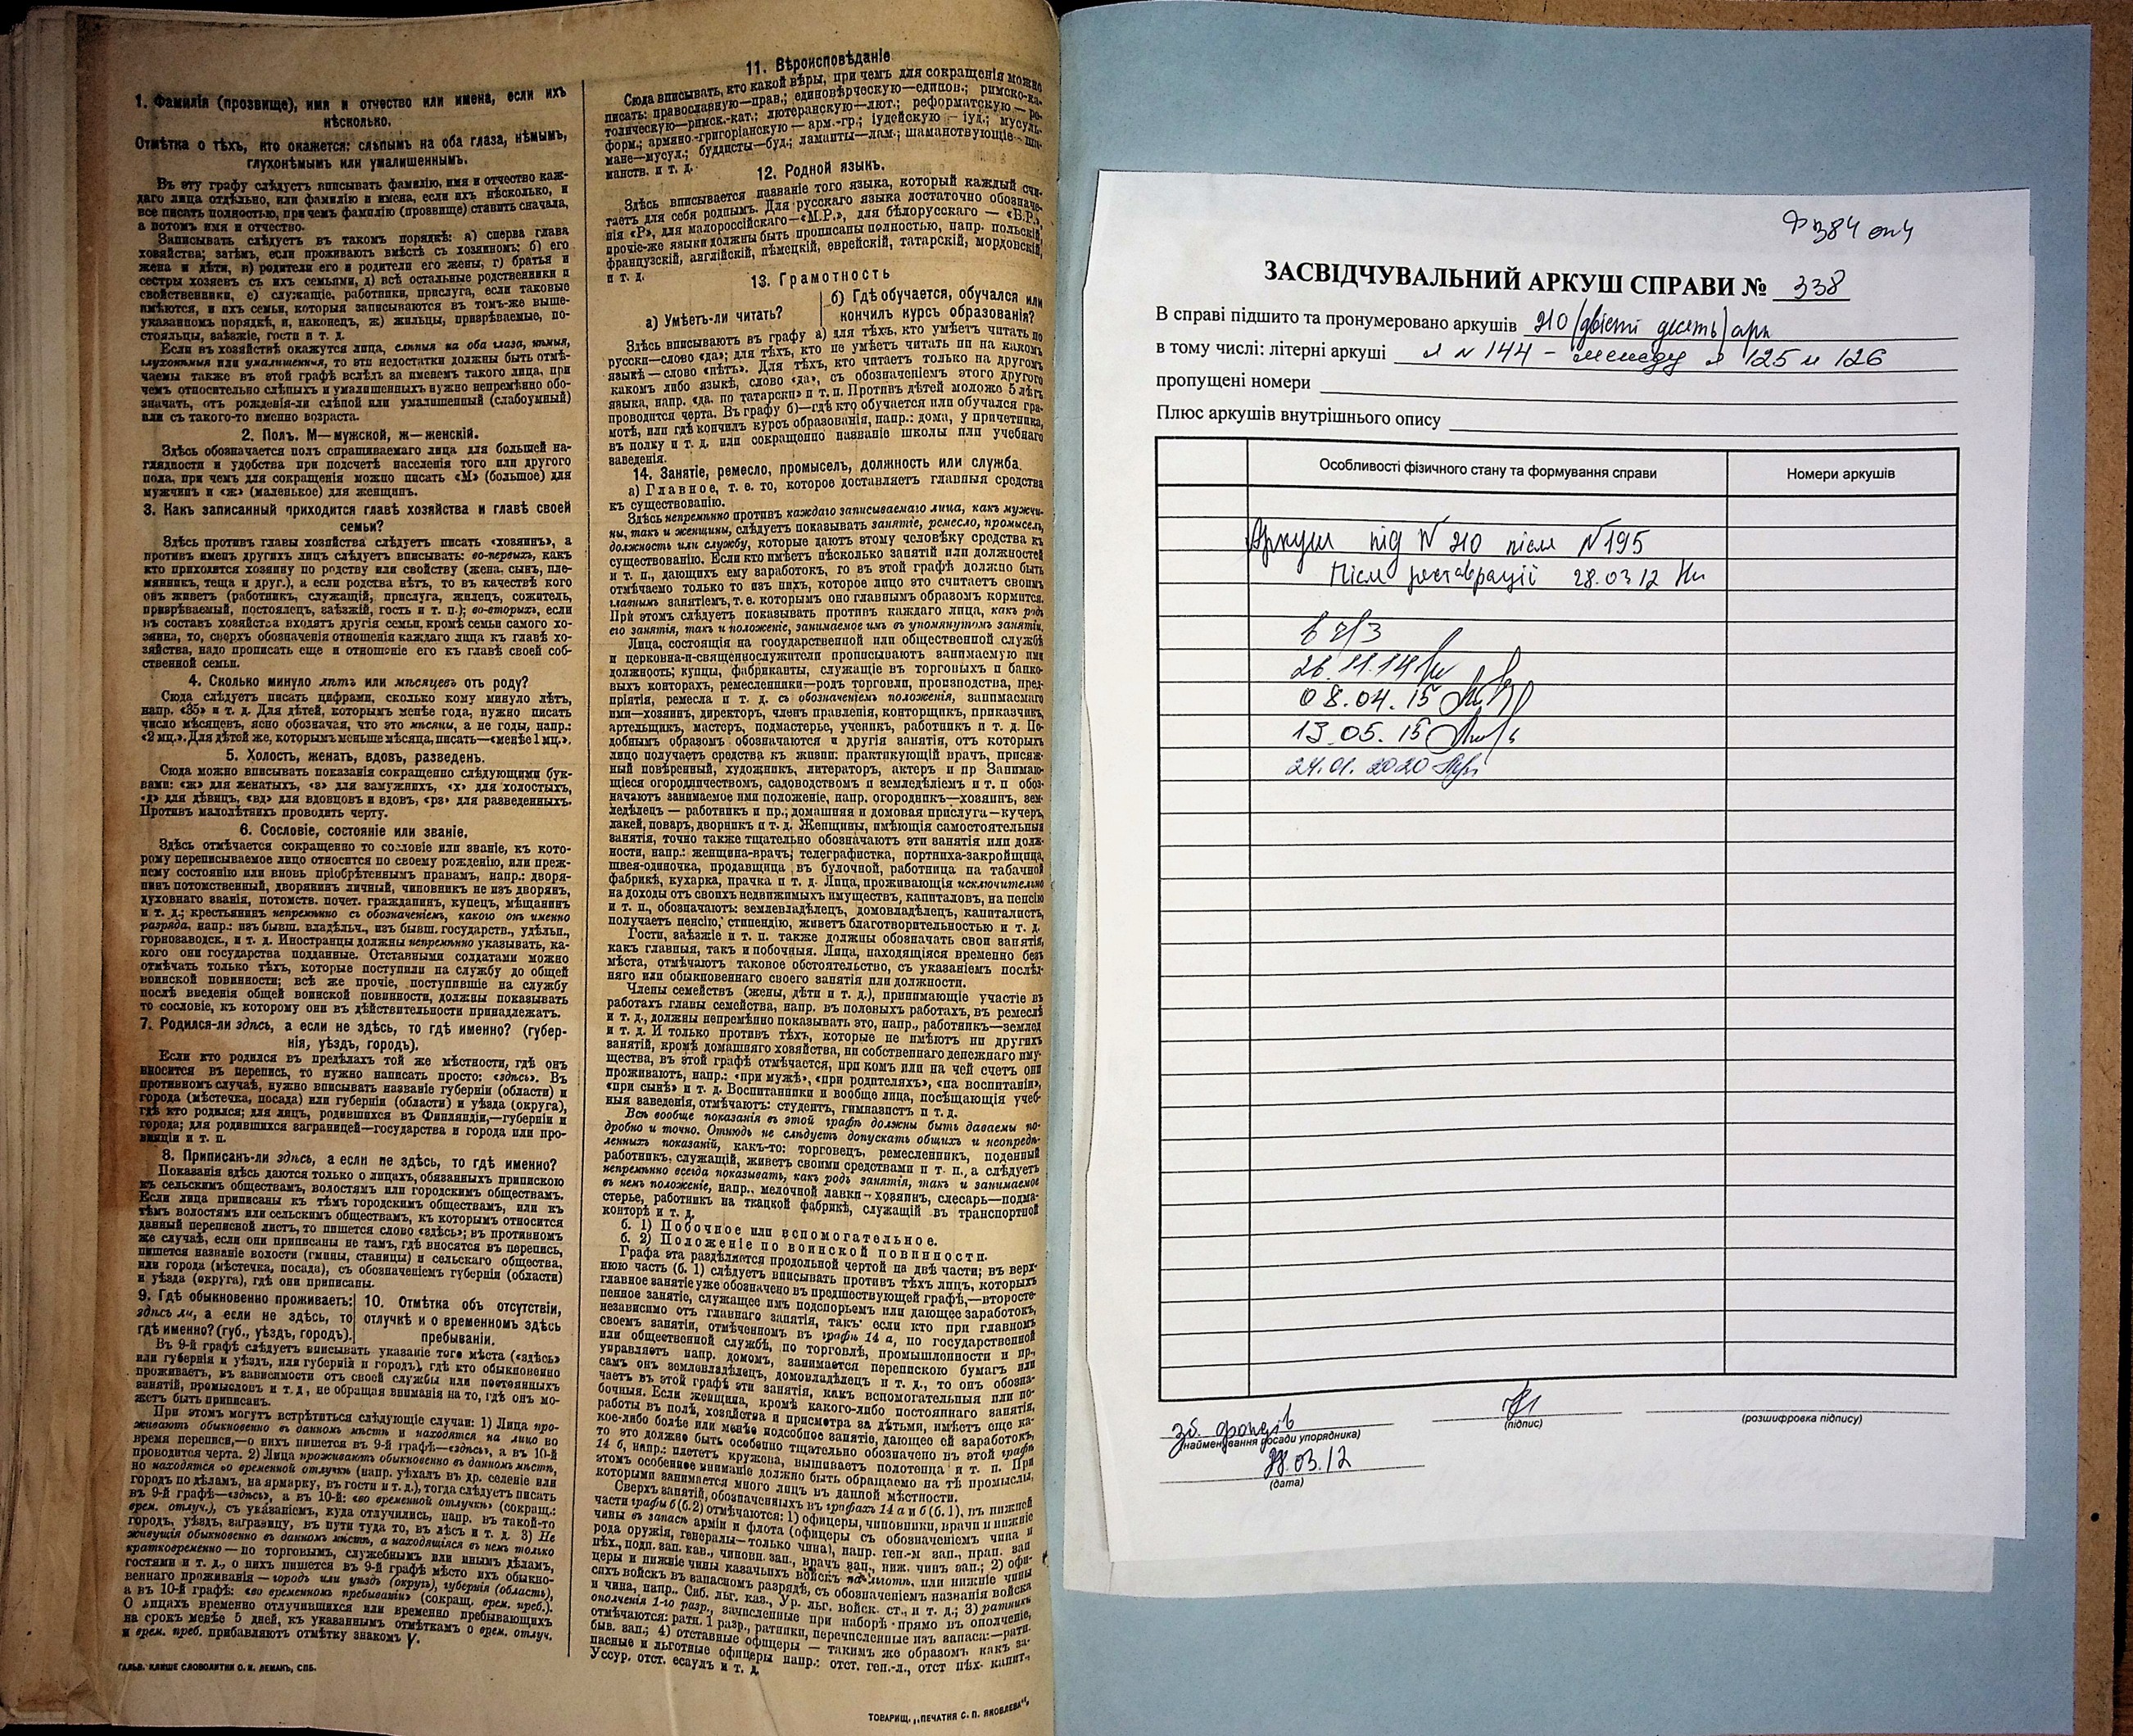 1. Фамилія (прозвище), имя и отчество или имена, если ихъ
нѣсколько.
Отмѣтка о тѣхъ, кто окажется: слѣпымъ на оба глаза, нѣмымъ,
глухонѣмымъ или умалишеннымъ.
Въ эту графу слѣдуетъ вписывать фамилію, имя и отчество каж-
даго лица отдѣльно, или фамилію и имена, если ихъ нѣсколько, и
все писать полностью, при чемъ фамилію (прозвище) ставить сначала,
а потомъ имя и отчество.
Записывать слѣдуетъ въ такомъ порядкѣ: а) сперва глава
хозяйства; затѣмъ, если проживаютъ вмѣстѣ съ хозяиномъ: б) его
жена и дѣти, в) родители его и родители его жены, г) братья и
сестры хозяевъ съ ихъ семьями, д) всѣ остальные родственники и
свойственники, е) служащіе, работники, прислуга, если таковые
имѣются, и ихъ семьи, которыя записываются въ томъ-же выше-
указанномъ порядкѣ, и, наконецъ, ж) жильцы, призрѣваемые, по-
стояльцы, заѣзжіе, гости и т. д.
Если въ хозяйствѣ окажутся лица, слѣпыя на оба глаза, нѣмыя,
глухонѣмыя или умалишенныя, то эти недостатки должны быть отмѣ-
чаемы также въ этой графѣ вслѣдъ за именемъ такого лица, при
чемъ относительно слѣпыхъ и умалишенныхъ нужно непремѣнно обо-
значать, отъ рожденія-ли слѣпой или умалишенный (слабоумный)
или съ такого-то именно возраста.
2. Полъ. М—мужской, ж—женскій.
Здѣсь обозначается полъ спрашиваемаго лица для большей на-
глядности и удобства при подсчетѣ населенія того или другого
пола, при чемъ для сокращенія можно писать «М» (большое) для
мужчинъ и «ж» (маленькое) для женщинъ.
3. Какъ записанный приходится главѣ хозяйства и главѣ своей
семьи?
Здѣсь противъ главы хозяйства слѣдуетъ писать «хозяинъ», а
противъ именъ другихъ лицъ слѣдуетъ вписывать: во-первыхъ, какъ
кто приходится хозяину по родству или свойству (жена, сынъ, пле-
мянникъ, теща и друг.), а если родства нѣтъ, то въ качествѣ кого
онъ живетъ (работникъ, служащій, прислуга, жилецъ, сожитель,
призрѣваемый, постоялецъ, заѣзжій, гость и т. п.); во-вторыхъ, если
въ составъ хозяйства входятъ другія семьи, кромѣ семьи самого хо-
зяина, то, сверхъ обозначенія отношенія каждаго лица къ главѣ хо-
зяйства, надо прописать еще и отношеніе его къ главѣ своей соб-
ственной семьи.
4. Сколько минуло лѣтъ или мѣсяцевъ отъ роду?
Сюда слѣдуетъ писать цифрами, сколько кому минуло лѣтъ,
напр. «35» и т. д. Для дѣтей, которымъ менѣе года, нужно писать
число мѣсяцевъ, ясно обозначая, что это мѣсяцы, а не годы, напр.:
«2 мц.». Для дѣтей же, которымъ меньше мѣсяца, писать—«менѣе 1 мц.».
5. Холостъ, женатъ, вдовъ, разведенъ.
Сюда можно вписывать показанія сокращенно слѣдующими бук-
вами: «ж» для женатыхъ, «з» для замужнихъ, «х» для холостыхъ,
«д» для дѣвицъ, «вд» для вдовцовъ и вдовъ, «рз» для разведенныхъ.
Противъ малолѣтнихъ проводить черту.
6. Сословіе, состояніе или званіе.
Здѣсь отмѣчается сокращенно то сословіе или званіе, къ кото-
рому переписываемое лицо относится по своему рожденію, или преж-
нему состоянію или вновь пріобрѣтеннымъ правамъ, напр.: дворя-
нинъ потомственный, дворянинъ личный, чиновникъ не изъ дворянъ,
духовнаго званія, потомств. почет. гражданинъ, купецъ, мѣщанинъ
и т. д.; крестьянинъ непремѣнно съ обозначеніемъ, какого онъ именно
разряда, напр.: изъ бывш. владѣльч., изъ бывш. государств., удѣльн.,
горнозаводск., и т. д. Иностранцы должны непремѣнно указывать, ка-
кого они государства подданные. Отставными солдатами можно
отмѣчать только тѣхъ, которые поступили на службу до общей
воинской повинности; всѣ же прочіе, поступившіе на службу
послѣ введенія общей воинской повинности, должны показывать
то сословіе, къ которому они въ дѣйствительности принадлежатъ.
7. Родился-ли здѣсь, а если не здѣсь, то гдѣ именно? (губер-
нія, уѣздъ, городъ).
Если кто родился въ предѣлахъ той же мѣстности, гдѣ онъ
вносится въ перепись, то нужно написать просто: «здѣсь». Въ
противномъ случаѣ, нужно вписывать названіе губерніи (области) и
города (мѣстечка, посада) или губерніи (области) и уѣзда (округа),
гдѣ кто родился; для лицъ, родившихся въ Финляндіи,—губерніи и
города; для родившихся заграницей—государства и города или про-
винціи и т. п.
8. Приписанъ-ли здѣсь, а если не здѣсь, то гдѣ именно?
Показанія здѣсь даются только о лицахъ, обязанныхъ припискою
къ сельскимъ обществамъ, волостямъ или городскимъ обществамъ.
Если лица приписаны къ тѣмъ городскимъ обществамъ, или къ
тѣмъ волостямъ или сельскимъ обществамъ, къ которымъ относится
данный переписной листъ, то пишется слово «здѣсь»; въ противномъ
же случаѣ, если они приписаны не тамъ, гдѣ вносятся въ перепись,
пишется названіе волости (гмины, станицы) и сельскаго общества,
или города (мѣстечка, посада), съ обозначеніемъ губерніи (области)
и уѣзда (округа), гдѣ они приписаны.
9. Гдѣ обыкновенно проживаетъ:
здѣсь ли, а если не здѣсь, то
гдѣ именно? (губ., уѣздъ, городъ).
10. Отмѣтка объ отсутствіи,
отлучкѣ и о временномъ здѣсь
пребываніи.
Въ 9-й графѣ слѣдуетъ вписывать указаніе того мѣста («здѣсь»
или губернія и уѣздъ, или губерній и городъ), гдѣ кто обыкновенно
проживаетъ, въ зависимости отъ своей службы или постоянныхъ
занятій, промысловъ и т. д., не обращая вниманія на то, гдѣ онъ мо-
жетъ быть приписанъ.
При этомъ могутъ встрѣтиться слѣдующіе случаи: 1) Лица про-
живаютъ обыкновенно въ данномъ мѣстѣ и находятся на лицо во
время переписи,—о нихъ пишется въ 9-й графѣ—«здѣсь», а въ 10-й
проводится черта. 2) Лица проживаютъ обыкновенно въ данномъ мѣстѣ,
но находятся во временной отлучкѣ (напр. уѣхалъ въ др. селеніе или
городъ по дѣламъ, на ярмарку, въ гости и т. д.), тогда слѣдуетъ писать
въ 9-й графѣ—«здѣсь», а въ 10-й: «во временной отлучкѣ» (сокращ.:
врем. отлуч.), съ указаніемъ, куда отлучились, напр. въ такой-то
городъ, уѣздъ, заграницу, въ пути туда то, въ лѣсъ и т. д. 3) Не
живущія обыкновенно въ данномъ мѣстѣ, а находящіяся въ немъ только
кратковременно — по торговымъ, служебнымъ или инымъ дѣламъ,
гостями и т. д., о нихъ пишется въ 9-й графѣ мѣсто ихъ обыкно-
веннаго проживанія — городъ или уѣздъ (округъ), губернія (область),
а въ 10-й графѣ: «во временномъ пребываніи» (сокращ. врем. преб.).
О лицахъ временно отлучившихся или временно пребывающихъ
на срокъ менѣе 5 дней, къ указаннымъ отмѣткамъ о врем. отлуч.
и врем. преб. прибавляютъ отмѣтку знакомъ V.
ГАЛЬВ. КЛИШЕ СЛОВОЛИТНИ О. И. ЛЕМАНЪ, СПБ.
11. Вѣроисповѣданіе
Сюда вписывать, кто какой вѣры, при чемъ для сокращенія можно
писать: православную—прав.; единовѣрческую—единов.; римско-ка-
толическую—римск.-кат.; лютеранскую—лют.; реформатскую — ре-
форм.; армяно-григоріанскую — арм.-гр.; іудейскую — іуд.; мусуль-
мане—мусул.; буддисты—буд.; ламаиты—лам.; шаманствующіе—ша-
манств. и т. д.
12. Родной языкъ.
Здѣсь вписывается названіе того языка, который каждый счи-
таетъ для себя роднымъ. Для русскаго языка достаточно обозначе-
нія «Р», для малороссійскаго—«М.Р.», для бѣлорусскаго — «Б.Р.»,
прочіе-же языки должны быть прописаны полностью, напр. польскій,
французскій, англійскій, нѣмецкій, еврейскій, татарскій, мордовскій,
и т. д.
13. Грамотность
а) Умѣетъ-ли читать?
б) Гдѣ обучается, обучался или
кончилъ курсъ образованія?
Здѣсь вписываютъ въ графу а) для тѣхъ, кто умѣетъ читать по
русски—слово «да»; для тѣхъ, кто не умѣетъ читать ни на какомъ
языкѣ — слово «нѣтъ». Для тѣхъ, кто читаетъ только на другомъ
какомъ либо языкѣ, слово «да», съ обозначеніемъ этого другого
языка, напр. «да, по татарски» и т. п. Противъ дѣтей моложе 5 лѣтъ
проводится черта. Въ графу б)—гдѣ кто обучается или обучался гра-
мотѣ, или гдѣ кончилъ курсъ образованія, напр.: дома, у причетника,
въ полку и т. д. или сокращенно названіе школы или учебнаго
заведенія.
14. Занятіе, ремесло, промыселъ, должность или служба.
а) Главное, т. е. то, которое доставляетъ главныя средства
къ существованію.
Здѣсь непремѣнно противъ каждаго записываемаго лица, какъ мужчи-
ны, такъ и женщины, слѣдуетъ показывать занятіе, ремесло, промыселъ,
должность или службу, которые даютъ этому человѣку средства къ
существованію. Если кто имѣетъ нѣсколько занятій или должностей
и т. п., дающихъ ему заработокъ, то въ этой графѣ должно быть
отмѣчаемо только то изъ нихъ, которое лицо это считаетъ своимъ
главнымъ занятіемъ, т. е. которымъ оно главнымъ образомъ кормится.
При этомъ слѣдуетъ показывать противъ каждаго лица, какъ родъ
его занятія, такъ и положеніе, занимаемое имъ въ упомянутомъ занятіи.
Лица, состоящія на государственной или общественной службѣ
и церковно-и-священнослужители прописываютъ занимаемую ими
должность; купцы, фабриканты, служащіе въ торговыхъ и банко-
выхъ конторахъ, ремесленники—родъ торговли, производства, пред-
пріятія, ремесла и т. д. съ обозначеніемъ положенія, занимаемаго
ими—хозяинъ, директоръ, членъ правленія, конторщикъ, приказчикъ,
артельщикъ, мастеръ, подмастерье, ученикъ, работникъ и т. д. По-
добнымъ образомъ обозначаются и другія занятія, отъ которыхъ
лицо получаетъ средства къ жизни: практикующій врачъ, присяж-
ный повѣренный, художникъ, литераторъ, актеръ и пр Занимаю-
щіеся огородничествомъ, садоводствомъ и земледѣліемъ и т. п обоз-
начаютъ занимаемое ими положеніе, напр. огородникъ—хозяинъ, зем-
ледѣлецъ — работникъ и пр.; домашняя и домовая прислуга—кучеръ,
лакей, поваръ, дворникъ и т. д. Женщины, имѣющія самостоятельныя
занятія, точно также тщательно обозначаютъ эти занятія или долж-
ности, напр.: женщина-врачъ; телеграфистка, портниха-закройщица,
швея-одиночка, продавщица въ булочной, работница на табачной
фабрикѣ, кухарка, прачка и т. д. Лица, проживающія исключительно
на доходы отъ своихъ недвижимыхъ имуществъ, капиталовъ, на пенсію
и т. п., обозначаютъ: землевладѣлецъ, домовладѣлецъ, капиталистъ,
получаетъ пенсію, стипендію, живетъ благотворительностью и т. д.
Гости, заѣзжіе и т. п. также должны обозначать свои занятія,
какъ главныя, такъ и побочныя. Лица, находящіяся временно безъ
мѣста, отмѣчаютъ таковое обстоятельство, съ указаніемъ послѣд-
няго или обыкновеннаго своего занятія или должности.
Члены семействъ (жены, дѣти и т. д.), принимающіе участіе въ
работахъ главы семейства, напр. въ полевыхъ работахъ, въ ремеслѣ
и т. д., должны непремѣнно показывать это, напр., работникъ—землед
и т. д. И только противъ тѣхъ, которые не имѣютъ ни другихъ
занятій, кромѣ домашняго хозяйства, ни собственнаго денежнаго иму-
щества, въ этой графѣ отмѣчается, при комъ или на чей счетъ они
проживаютъ, напр.: «при мужѣ», «при родителяхъ», «на воспитаніи»,
«при сынѣ» и т. д. Воспитанники и вообще лица, посѣщающія учеб-
ныя заведенія, отмѣчаютъ: студентъ, гимназистъ и т. д.
Всѣ вообще показанія въ этой графѣ должны быть даваемы по-
дробно и точно. Отнюдь не слѣдуетъ допускать общихъ и неопредѣ-
ленныхъ показаній, какъ-то: торговецъ, ремесленникъ, поденный
работникъ, служащій, живетъ своими средствами и т. п., а слѣдуетъ
непремѣнно всегда показывать, какъ родъ занятія, такъ и занимаемое
въ немъ положеніе, напр., мелочной лавки—хозяинъ, слесарь—подма-
стерье, работникъ на ткацкой фабрикѣ, служащій въ транспортной
конторѣ и т. д.
б. 1) Побочное или вспомогательное.
б. 2) Положеніе по воинской повинности.
Графа эта раздѣляется продольной чертой на двѣ части; въ верх-
нюю часть (б. 1) слѣдуетъ вписывать противъ тѣхъ лицъ, которыхъ
главное занятіе уже обозначено въ предшествующей графѣ,—второсте-
пенное занятіе, служащее имъ подспорьемъ или дающее заработокъ,
независимо отъ главнаго занятія, такъ: если кто при главномъ
своемъ занятіи, отмѣченномъ въ графѣ 14 а, по государственной
или общественной службѣ, по торговлѣ, промышленности и пр.,
управляетъ напр. домомъ, занимается перепискою бумагъ или
самъ онъ землевладѣлецъ, домовладѣлецъ и т. д., то онъ обозна-
чаетъ въ этой графѣ эти занятія, какъ вспомогательныя или по-
бочныя. Если женщина, кромѣ какого-либо постояннаго занятія,
работы въ полѣ, хозяйства и присмотра за дѣтьми, имѣетъ еще ка-
кое-либо болѣе или менѣе подсобное занятіе, дающее ей заработокъ,
то это должно быть особенно тщательно обозначено въ этой графѣ
14 б, напр.: плететъ кружева, вышиваетъ полотенца и т. п. При
этомъ особенное вниманіе должно быть обращаемо на тѣ промыслы,
которыми занимается много лицъ въ данной мѣстности.
Сверхъ занятій, обозначенныхъ въ графахъ 14 а и б (б. 1), въ нижней
части графы б (б.2) отмѣчаются: 1) офицеры, чиновники, врачи и нижніе
чины въ запасѣ арміи и флота (офицеры съ обозначеніемъ чина и
рода оружія, генералы—только чина), напр. ген.-м зап., прап. зап
пѣх., подп. зап. кав., чиновн. зап., врачъ зап., ниж. чинъ зап.; 2) офи-
церы и нижніе чины казачьихъ войскъ на льготѣ, или нижніе чины
сихъ войскъ въ запасномъ разрядѣ, съ обозначеніемъ названія войска
и чина, напр.. Сиб. льг. каз., Ур. льг. войск. ст., и т. д.; 3) ратники
ополченія 1-го разр., зачисленные при наборѣ прямо въ ополченіе,
отмѣчаются: ратн. 1 разр., ратники, перечисленные изъ запаса:—ратн.
быв. зап.; 4) отставные офицеры — такимъ же образомъ какъ за-
пасные и льготные офицеры напр.: отст. ген.-л., отст пѣх. капит.,
Уссур. отст. есаулъ и т. д.
ТОВАРИЩ. „ПЕЧАТНЯ С. П. ЯКОВЛЕВА".
Ф 384 оп 4
ЗАСВІДЧУВАЛЬНИЙ АРКУШ СПРАВИ № 338
В справі підшито та пронумеровано аркушів 210 (двісті десять) арк
в тому числі: літерні аркуші л N 144 - между л 125 и 126
пропущені номери
Плюс аркушів внутрішнього опису
Особливості фізичного стану та формування справи
Номери аркушів
Аркуш під N 210 після N 195
Після реставрації 28.03 12
26.11.14
08.04.15
13.05.15
24.01.2020
зб. фондів
(найменування посади упорядника)
(підпис)
(розшифровка підпису)
28.03.12
(дата)